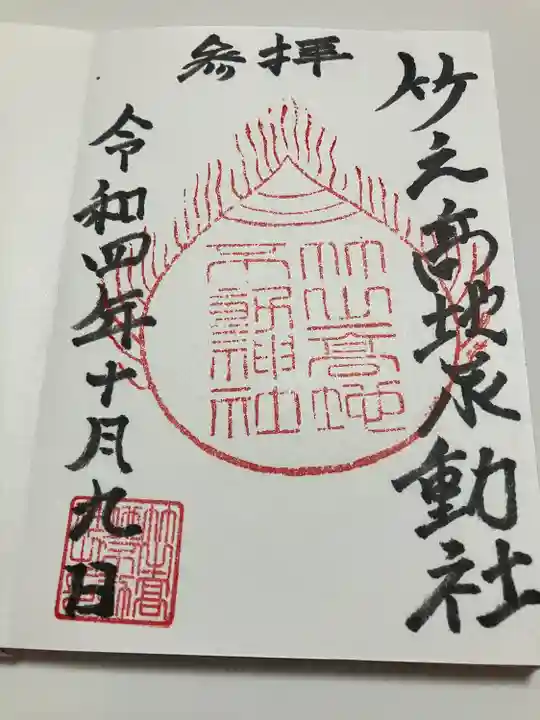 参拝
竹之高地不動社
竹之高地
不動神社
令和四年十月九日